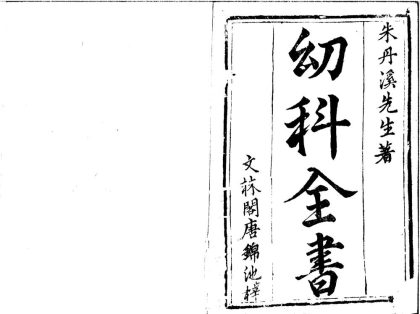 朱丹溪先生著
幼科全書
文林閣唐錦池梓